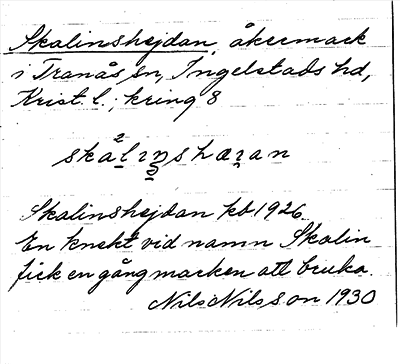 Skalinshejdan, åkermark
i Tranås sn, Ingelstads hd,
Krist. l.; kring 8
skalinshæian
Skalinshejdan kb 1926.
En knekt vid namn Skalin
fick en gång marken att bruka.
Nils Nilsson 1930